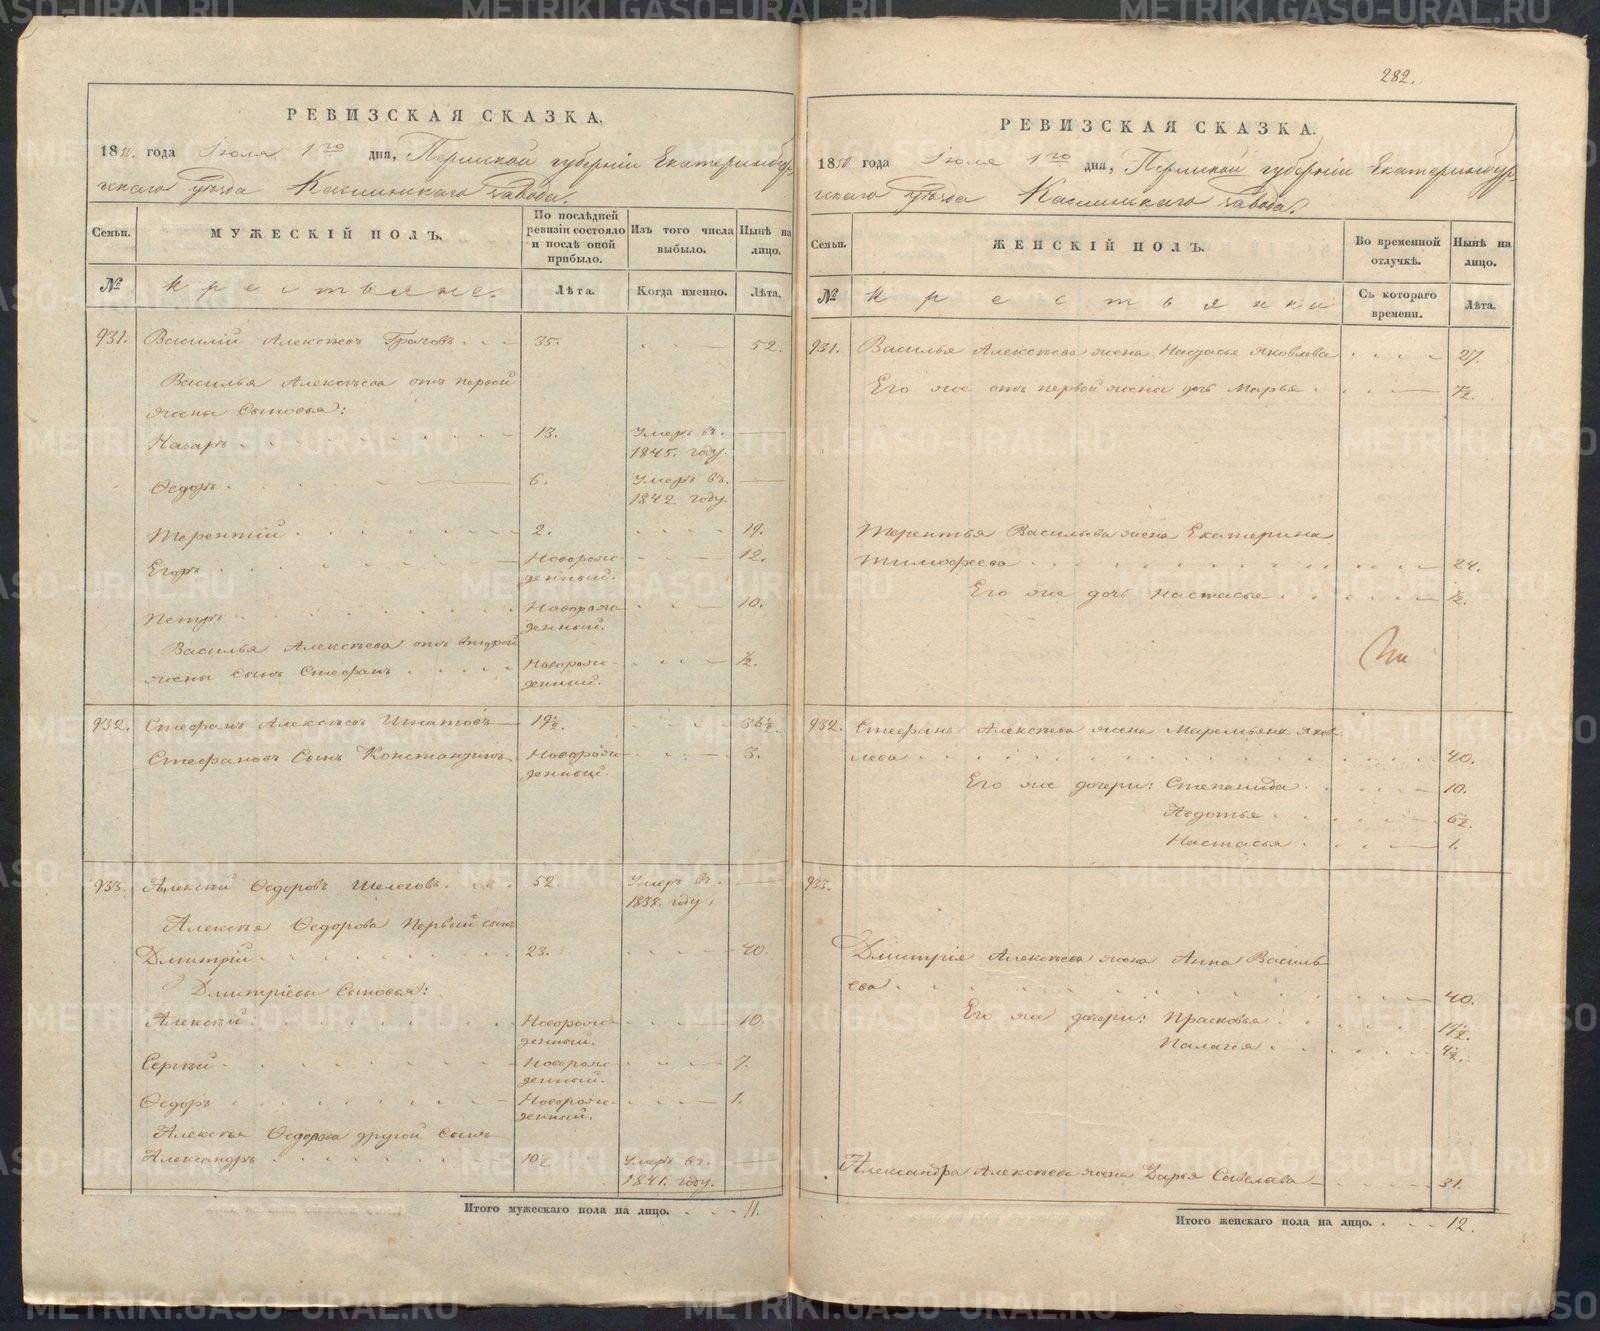 282.
РЕВИЗСКАЯ СКАЗКА.
1850. года Іюля 1го дня, Пермской губерніи Екатеринбур-
гскаго уѣзда Каслинскаго завода.
Семьи.
МУЖЕСКІЙ ПОЛЪ.
По послѣдней ревизіи состояло и послѣ оной прибыло.
Изъ того числа выбыло.
Нынѣ на лицо.
№ Крестьяне. Лѣта. Когда именно. Лѣта.
931. Василій Алексѣевъ Грачовъ 35. 52.
Василья Алексѣева отъ первой
жены Сыновья:
Назаръ 13. Умеръ въ
1845. году.
Ѳедоръ 6. Умеръ въ
1842. году.
Терентій 2. 19.
Егоръ Новорож- 12.
денный.
Петръ Новорож- 10.
денный.
Василья Алексѣева отъ второй
жены сынъ Стефанъ Новорож- ½.
денный.
932. Стефанъ Алексѣевъ 19½. 36½.
Стефановъ Сынъ Константинъ Новорож- 3.
денный.
933. Алексѣй Ѳедоровъ Шелеговъ 52. Умеръ въ
1838. году.
Алексѣя Ѳедорова Первый сынъ
Дмитрій 23. 40
Дмитріева Сыновья:
Алексѣй Новорож- 10.
денный.
Сергѣй Новорож- 7.
денный.
Ѳедоръ Новорож- 1.
денный.
Алексѣя Ѳедорова другой сынъ
Александръ 10½ Умеръ въ
1841. году.
Итого мужескаго пола на лицо. 11.
РЕВИЗСКАЯ СКАЗКА.
1850 года Іюля 1го дня, Пермской губерніи Екатеринбур-
гскаго уѣзда Каслинскаго завода.
Семьи.
ЖЕНСКІЙ ПОЛЪ.
Во временной отлучкѣ.
Нынѣ на лицо.
№ Крестьянки Съ котораго времени. Лѣта.
931. Василья Алексѣева жена Настасья Яковлева 27.
Его же отъ первой жены дочь Марья 7½.
Терентья Васильева жена Екатерина
Тимофеева 24.
Его же дочь Настасья ½.
932. Стефана Алексѣева жена Маремьяна Яков-
лева 40.
Его же дочери: Степанида 10.
Авдотья 6½.
Настасья 1.
933.
Дмитрія Алексѣева жена Анна Василь
ева 40.
Его же дочери: Прасковья 17½.
Палагея 4½.
Александра Алексѣева жена Дарья Савельева 31.
Итого женскаго пола на лицо. 12.
METRIKI.GASO-URAL.RU